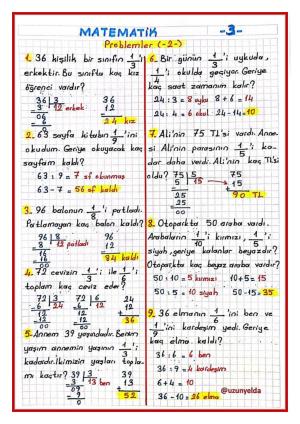 MATEMATİK -3-
Problemler (-2-)
1. 36 kişilik bir sınıfın 1/3'i
erkektir. Bu sınıfta kaç kız
öğrenci vardır?
36 | 3 36
3 12 erkek - 12
06 24 kız
6
0
2. 63 sayfa kitabın 1/9'ini
okudum. Geriye okuyacak kaç
sayfam kaldı?
63 : 9 = 7 sf okunmuş
63 - 7 = 56 sf kaldı
3. 96 balonun 1/8'i patladı.
Patlamayan kaç balon kaldı?
96 | 8 96
8 12 patladı 12
16 84 kaldı
16
00
4. 72 cevizin 1/3'i ile 1/6'i
toplam kaç ceviz eder?
72 | 3 72 | 6 24
6 24 6 12 + 12
12 12 36
12 12
00 00
5. Annem 39 yaşındadır. Benim
yaşım annemin yaşının 1/3'i
kadardır. İkimizin yaşları topla-
mı kaçtır?
39 | 3 39
3 13 ben + 13
09 52
9
0
6. Bir günün 1/3'i uykuda,
1/4'i okulda geçiyor. Geriye
kaç saat zamanın kalır?
24 : 3 = 8 uyku 8 + 6 = 14
24 : 4 = 6 okul 24 - 14 = 10
7. Ali'nin 75 TL'si vardı. Anne-
si Ali'nin parasının 1/5'i ka-
dar daha verdi. Ali'nin kaç TL'si
oldu?
75 | 5 75
5 15 15
25 + 90 TL
25
00
8. Otoparkta 50 araba vardı.
Arabaların 1/10'i kırmızı, 1/5'i
siyah, geriye kalanlar beyazdır?
Otoparkta kaç beyaz araba vardır?
50 : 10 = 5 kırmızı 10 + 5 = 15
50 : 5 = 10 siyah 50 - 15 = 35
9. 36 elmanın 1/6'ini ben ve
1/9'ini kardeşim yedi. Geriye
kaç elma kalmıştır.
36 : 6 = 6 ben
36 : 9 = 4 kardeşim
6 + 4 = 10
36 - 10 = 26 elma
@uzunyelda